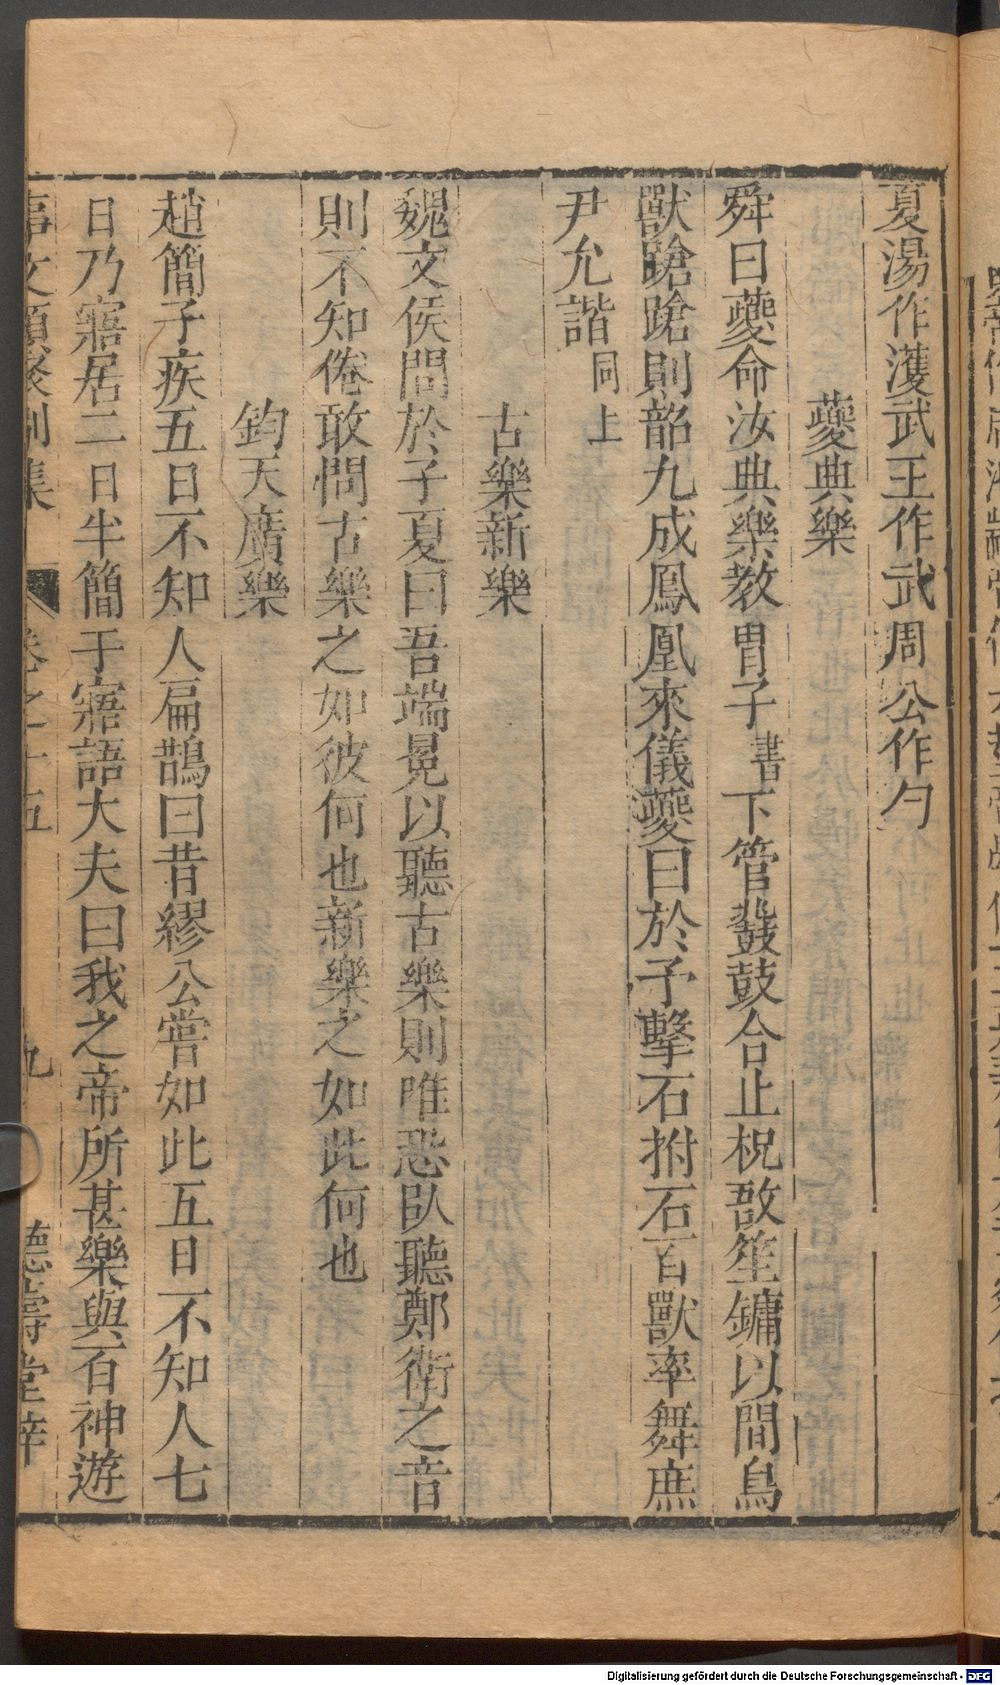 夏湯作濩武王作武周公作勺
夔典樂
舜曰夔命汝典樂教胄子書下管鼗鼓合止柷敔笙鏞以間鳥
獸蹌蹌則韶九成鳳凰來儀夔曰於予擊石拊石百獸率舞庶
尹允諧同上
古樂新樂
魏文侯問於子夏曰吾端冕以聽古樂則唯恐臥聽鄭衛之音
則不知倦敢問古樂之如彼何也新樂之如此何也
鈞天廣樂
趙簡子疾五日不知人扁鵲曰昔繆公嘗如此五日不知人七
日乃寤居二日半簡于寤語大夫曰我之帝所甚樂與百神遊
事文類聚別集 卷之十五 九 德壽堂梓
Digitalisierung gefördert durch die Deutsche Forschungsgemeinschaft - DFG